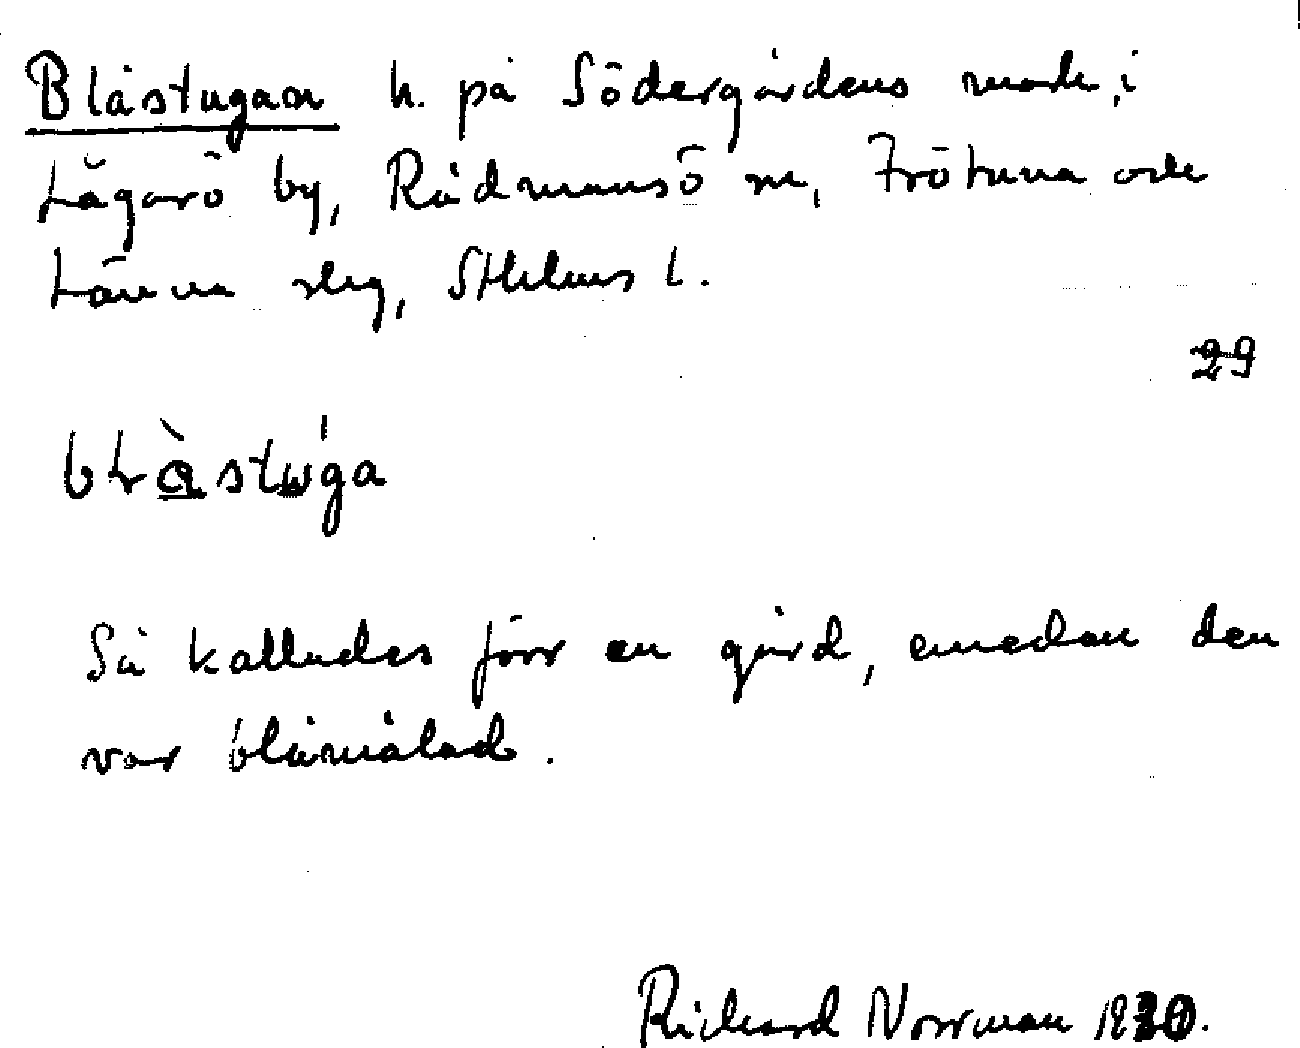 Blåstugan h. på Södergårdens mark, i
Lågarö by, Rådmansö sn, Frötuna och
Länna slg, Sthlms l.
29
blåstuga
Så kallades förr en gård, emedan den
var blåmålad.
Richard Norrman